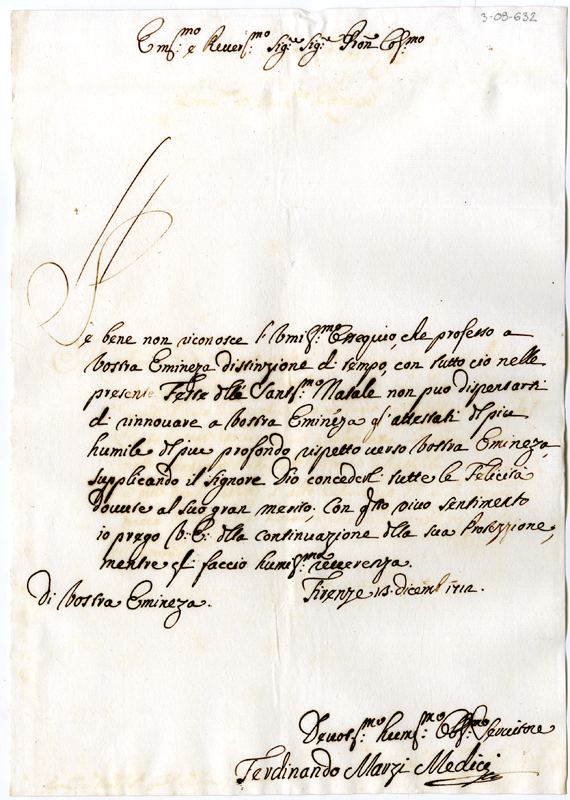 3-09-632
Emſ:mo e Reverſ:mo Sig:re Sig:re Pron Col:mo
Se bene non riconosce l'Umilſ:mo Ossequio, che professo a
Vostra Emineza distinzione di tempo, con tutto ciò nelle
presenti Feste della Santſ:mo Natale non può dispensarsi
di rinnovare a Vostra Emineza gl'attestati del più
humile del più profondo rispetto verso Vostra Emineza,
supplicando il Signore Dio concederli tutte le Felicità
dovute al suo gran merito; Con qsto vivo sentimento
io prego V: E: della continuazione della sua Protezzione,
mentre gli faccio humilſ:ma reverenza.
Di Vostra Emineza. Firenze 13. dicemb 1712.
Devotſ:mo humſ:mo Obſ:mo Servitore
Ferdinando Marzi Medici